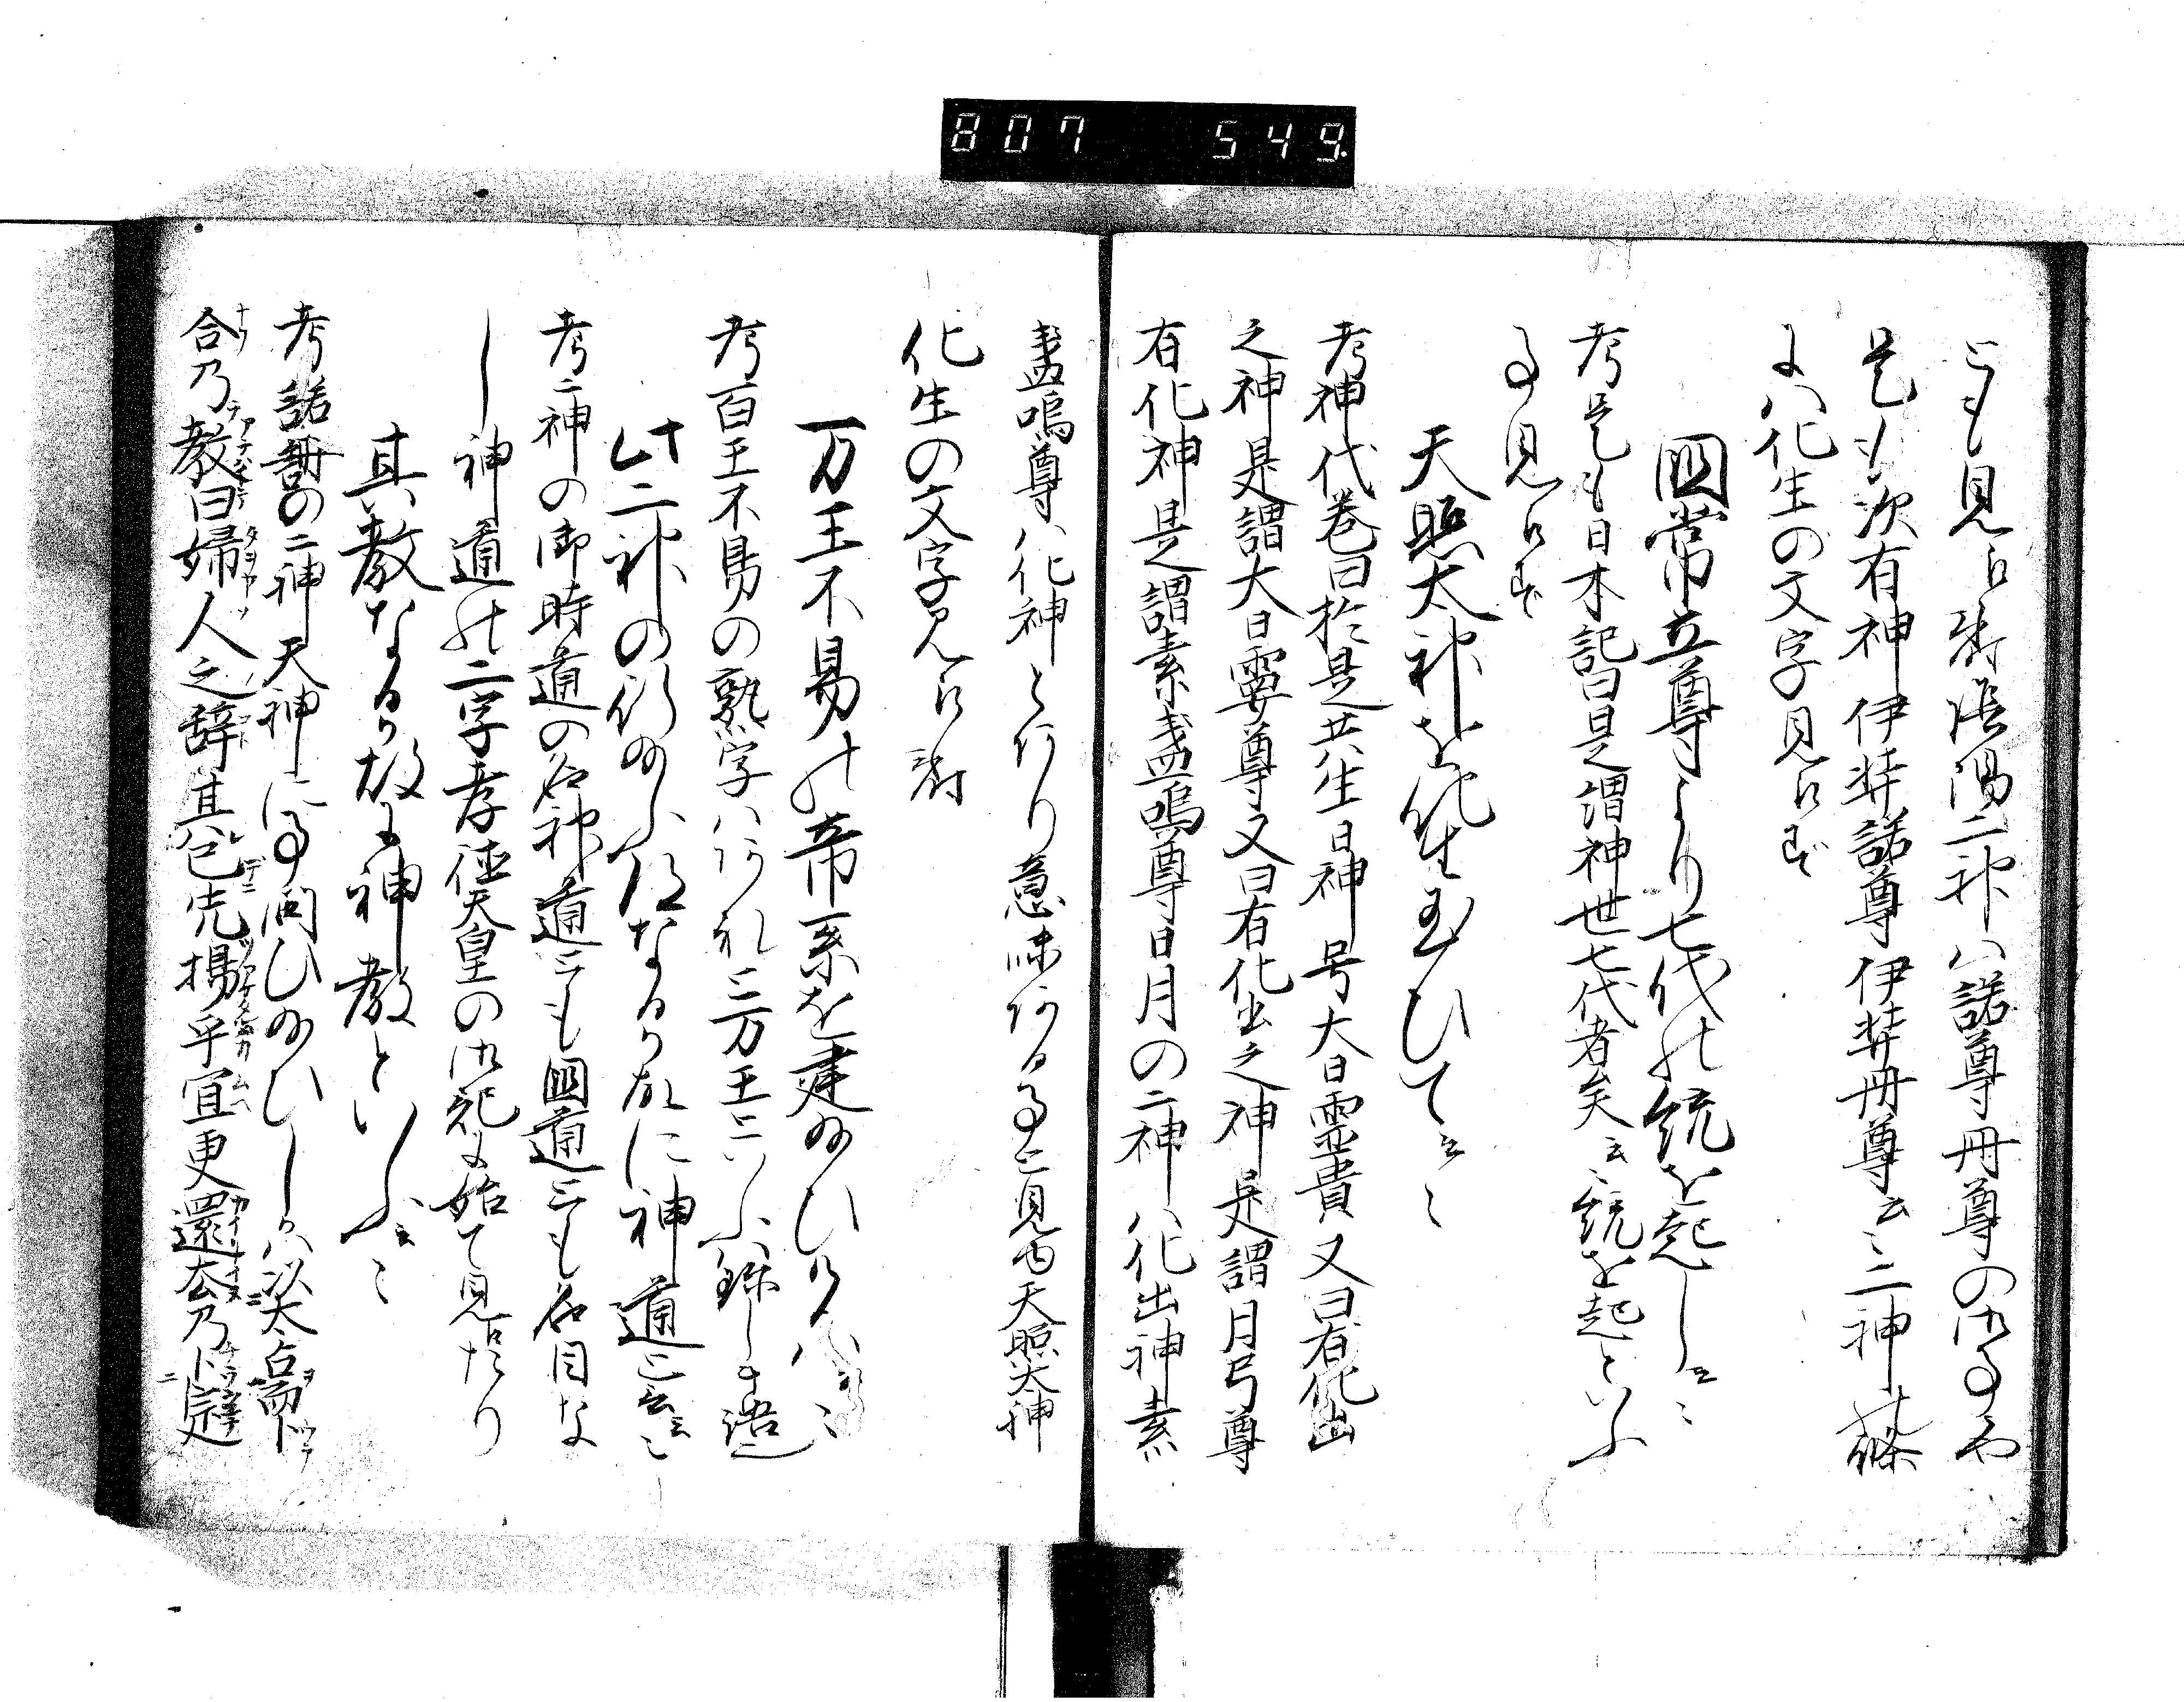 807 549
とも見へ財陰陽二神ハ諾尊冊尊の御事也
是も次有神伊弉諾尊伊弉冊尊云々二神
よハ化生の文字見へず
国常立尊より七代の統を起し云々
考是も日本記曰是謂神世七代者矣云々統を起といふ
事見へず
天照太神を化生玉ひて云々
考神代巻曰於是共生日神号大日孁貴又曰有化出
之神是謂大日孁尊又曰有化出之神是謂月弓尊
有化神是謂素盞嗚尊日月の二神ハ化出神素
盞嗚尊ハ化神とあり意味ある事と見ゆ天照太神
化生の文字見へ財
万王不易の帝系を建玉ひ
考百王不易の熟字ハあれ共万王といふ珍しき語也
此二神の行玉ふ道なる故に神道と云云々
考二神の御時道の名神道共も国道共も名目な
し神道の二字孝徳天皇の御紀に始て見へたり
其教なる故に神教といふ云々
考諾冊の二神天神に事問ひ玉ひしかハ以太占而卜
合乃教曰婦人之辞其已先揚乎宜更還去乃卜定